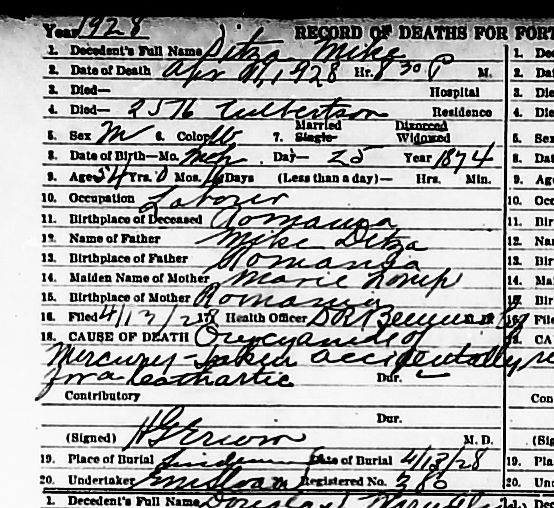 Year 1928 RECORD OF DEATHS FOR FORT
1. Decedent's Full Name Ditza Mike
2. Date of Death Apr 11, 1928 Hr. 8 30 P M.
3. Died— Hospital
4. Died— 2576 Culbertson Residence
5. Sex M 6. Color W 7. Married Single Divorced Widowed
8. Date of Birth—Mo. Mch Day— 25 Year 1874
9. Age 54 Yrs. 0 Mos. 16 Days (Less than a day)— Hrs. Min.
10. Occupation Laborer
11. Birthplace of Deceased Romania
12. Name of Father Mike Ditza
13. Birthplace of Father Romania
14. Maiden Name of Mother Marie
15. Birthplace of Mother Romania
16. Filed 4/13/28 17. Health Officer DR
18. CAUSE OF DEATH Oxycyanide of
Mercury - taken accidentally
for a Cathartic Dur.
Contributory
Dur.
(Signed) H G Erwin M. D.
19. Place of Burial Linden Date of Burial 4/13/28
20. Undertaker Registered No. 386
1. Decedent's Full Name